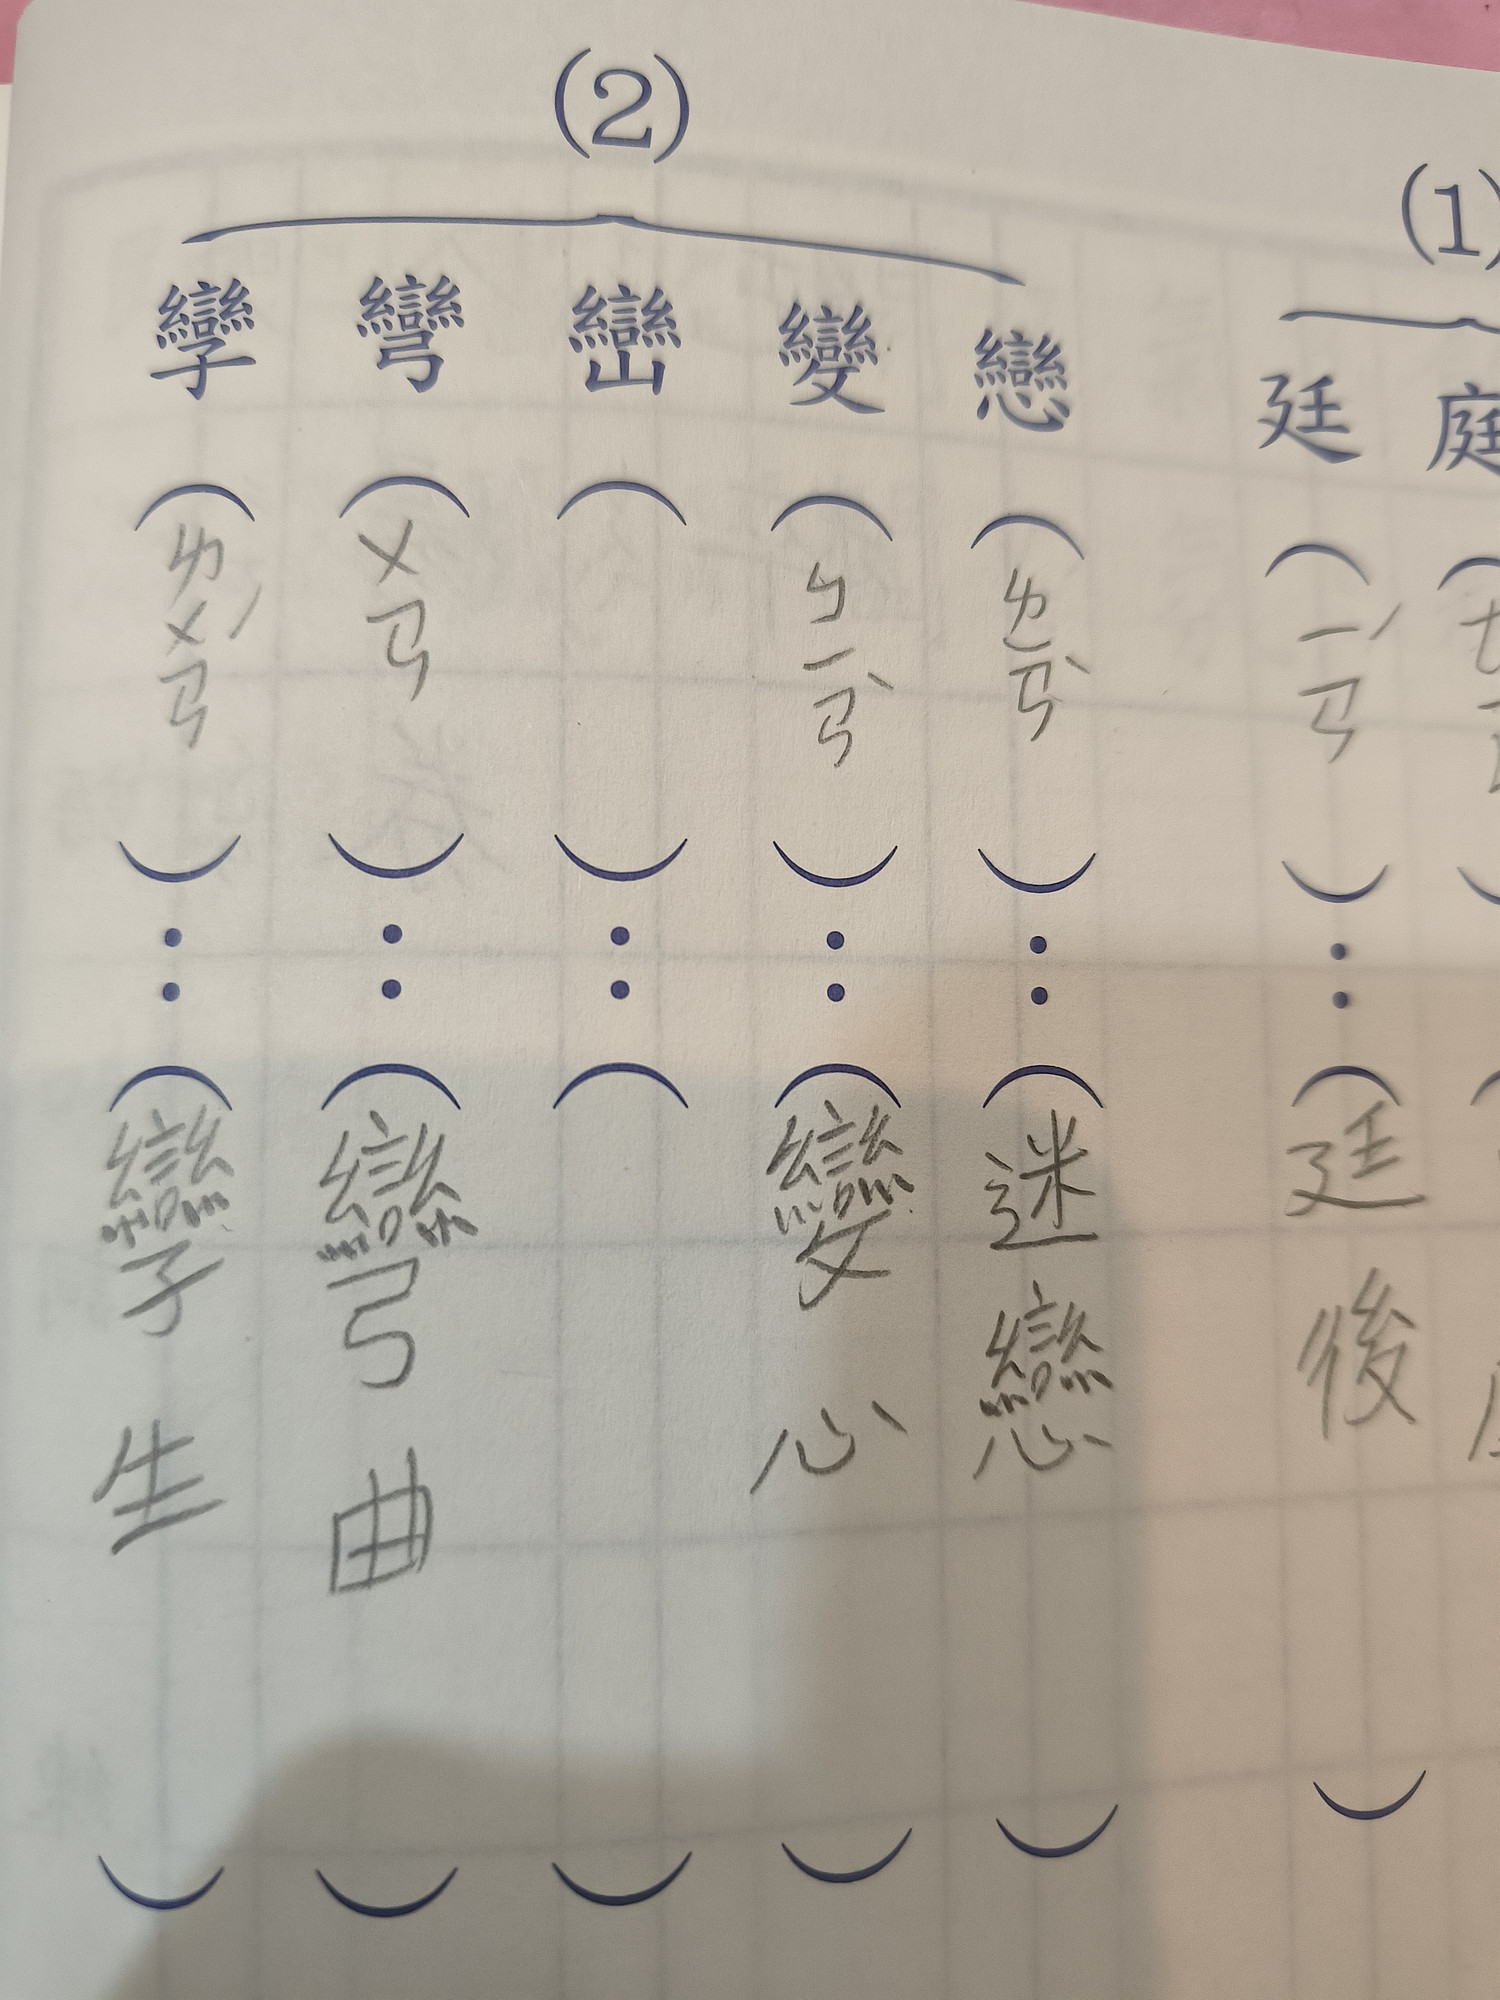 (1)
庭(
廷(ㄧㄢˊ):(廷後)
(2)
戀(ㄌㄧㄢˋ):(迷戀)
變(ㄅㄧㄢˋ):(變心)
巒( ):( )
彎(ㄨㄢ):(彎曲)
孿(ㄌㄨㄢˊ):(孿生)